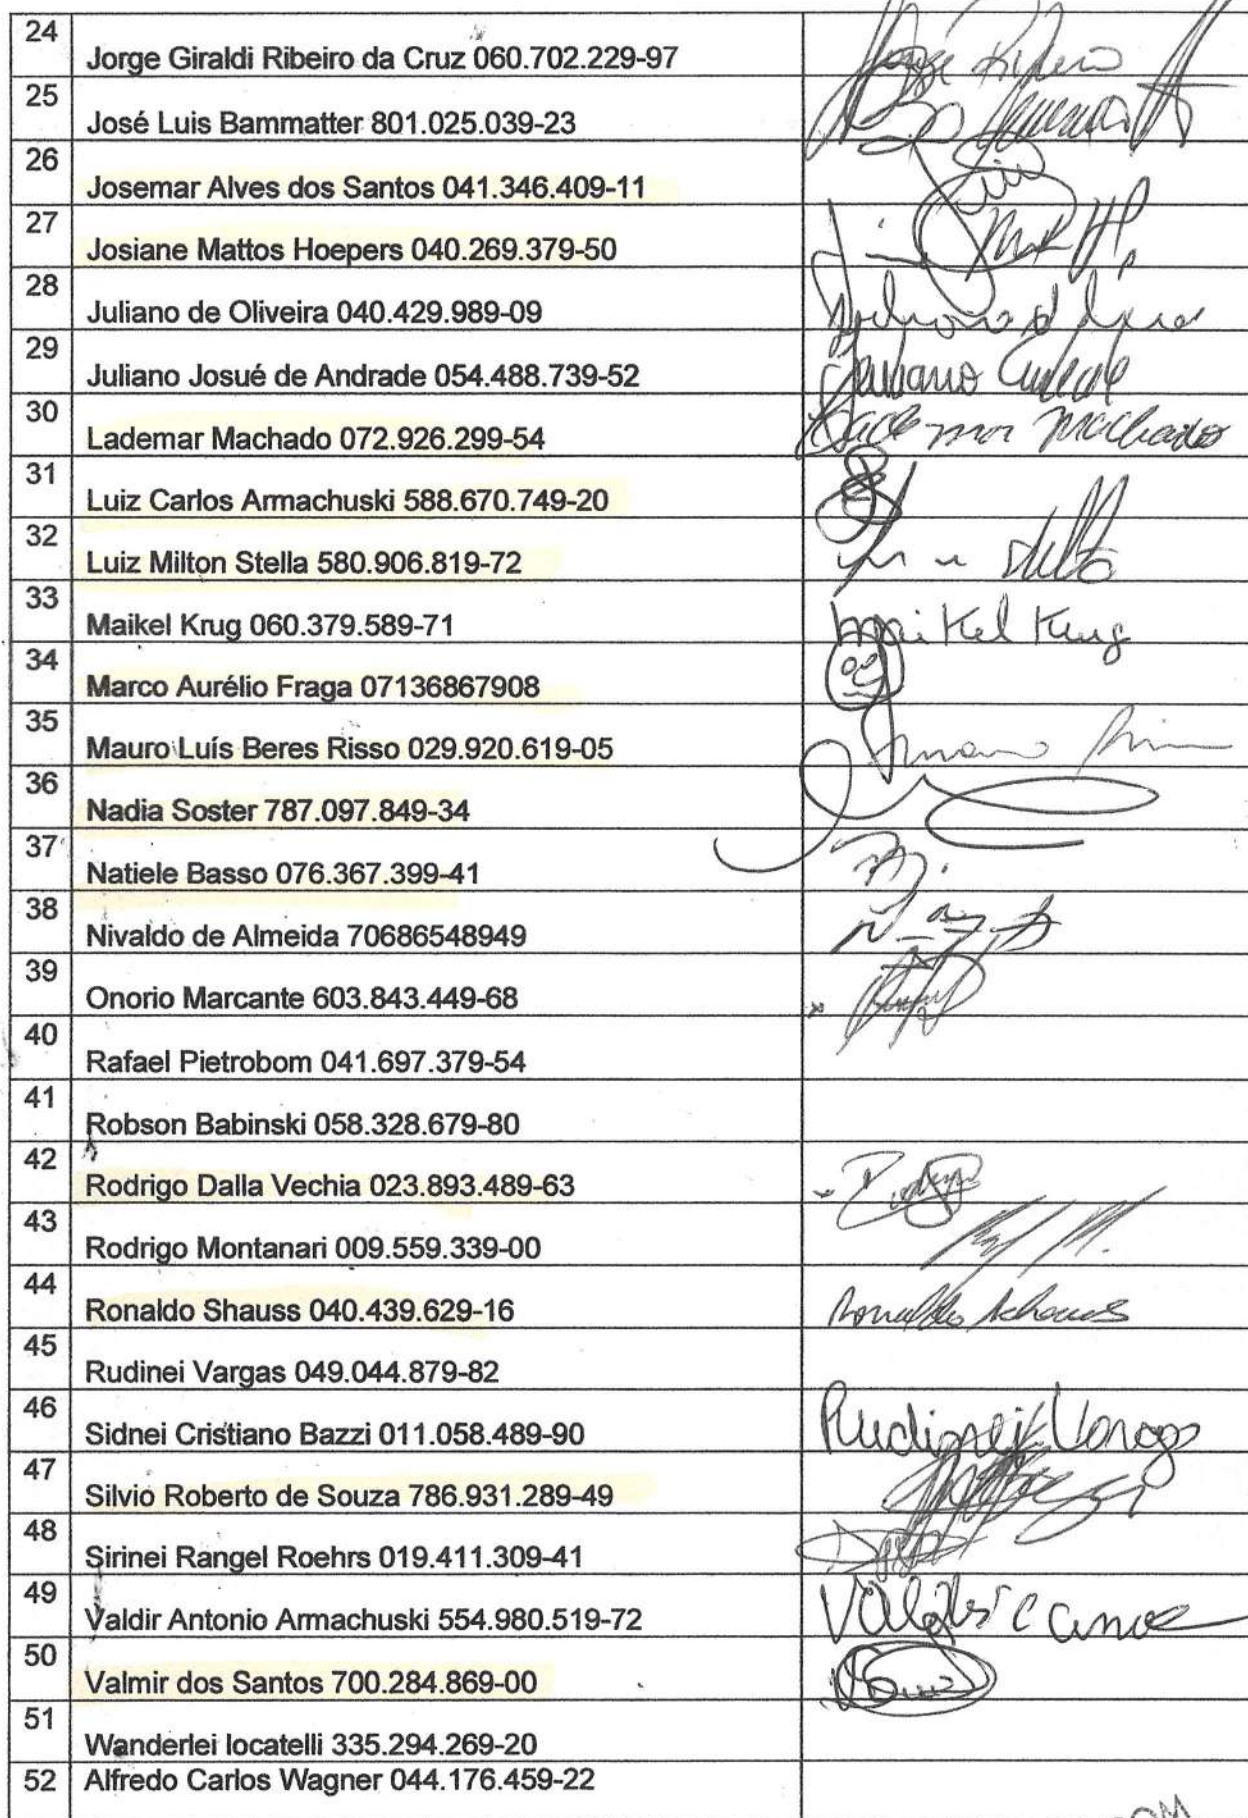 24
Jorge Giraldi Ribeiro da Cruz 060.702.229-97 Jorge Ribeiro
25
José Luis Bammatter 801.025.039-23
26
Josemar Alves dos Santos 041.346.409-11
27
Josiane Mattos Hoepers 040.269.379-50
28
Juliano de Oliveira 040.429.989-09
29
Juliano Josué de Andrade 054.488.739-52
30
Lademar Machado 072.926.299-54 Lademar Machado
31
Luiz Carlos Armachuski 588.670.749-20
32
Luiz Milton Stella 580.906.819-72
33
Maikel Krug 060.379.589-71 Maikel Krug
34
Marco Aurélio Fraga 07136867908
35
Mauro Luís Beres Risso 029.920.619-05
36
Nadia Soster 787.097.849-34
37
Natiele Basso 076.367.399-41
38
Nivaldo de Almeida 70686548949
39
Onorio Marcante 603.843.449-68
40
Rafael Pietrobom 041.697.379-54
41
Robson Babinski 058.328.679-80
42
Rodrigo Dalla Vechia 023.893.489-63
43
Rodrigo Montanari 009.559.339-00
44
Ronaldo Shauss 040.439.629-16 Ronaldo
45
Rudinei Vargas 049.044.879-82
46
Sidnei Cristiano Bazzi 011.058.489-90 Rudinei Vargas
47
Silvio Roberto de Souza 786.931.289-49
48
Sirinei Rangel Roehrs 019.411.309-41
49
Valdir Antonio Armachuski 554.980.519-72
50
Valmir dos Santos 700.284.869-00
51
Wanderlei locatelli 335.294.269-20
52 Alfredo Carlos Wagner 044.176.459-22